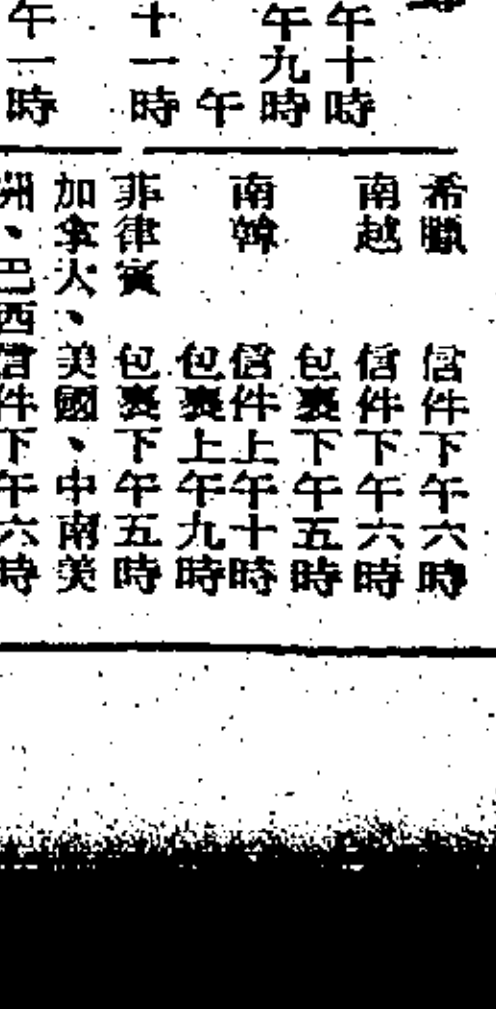 午十時
午九時
午
十一時
午一時
希臘 信件下午六時
南越 信件下午六時
包裹下午五時
南韓 信件上午十時
包裹上午九時
菲律賓 包裹下午五時
加拿大、美國、中南美
洲、巴西信件下午六時